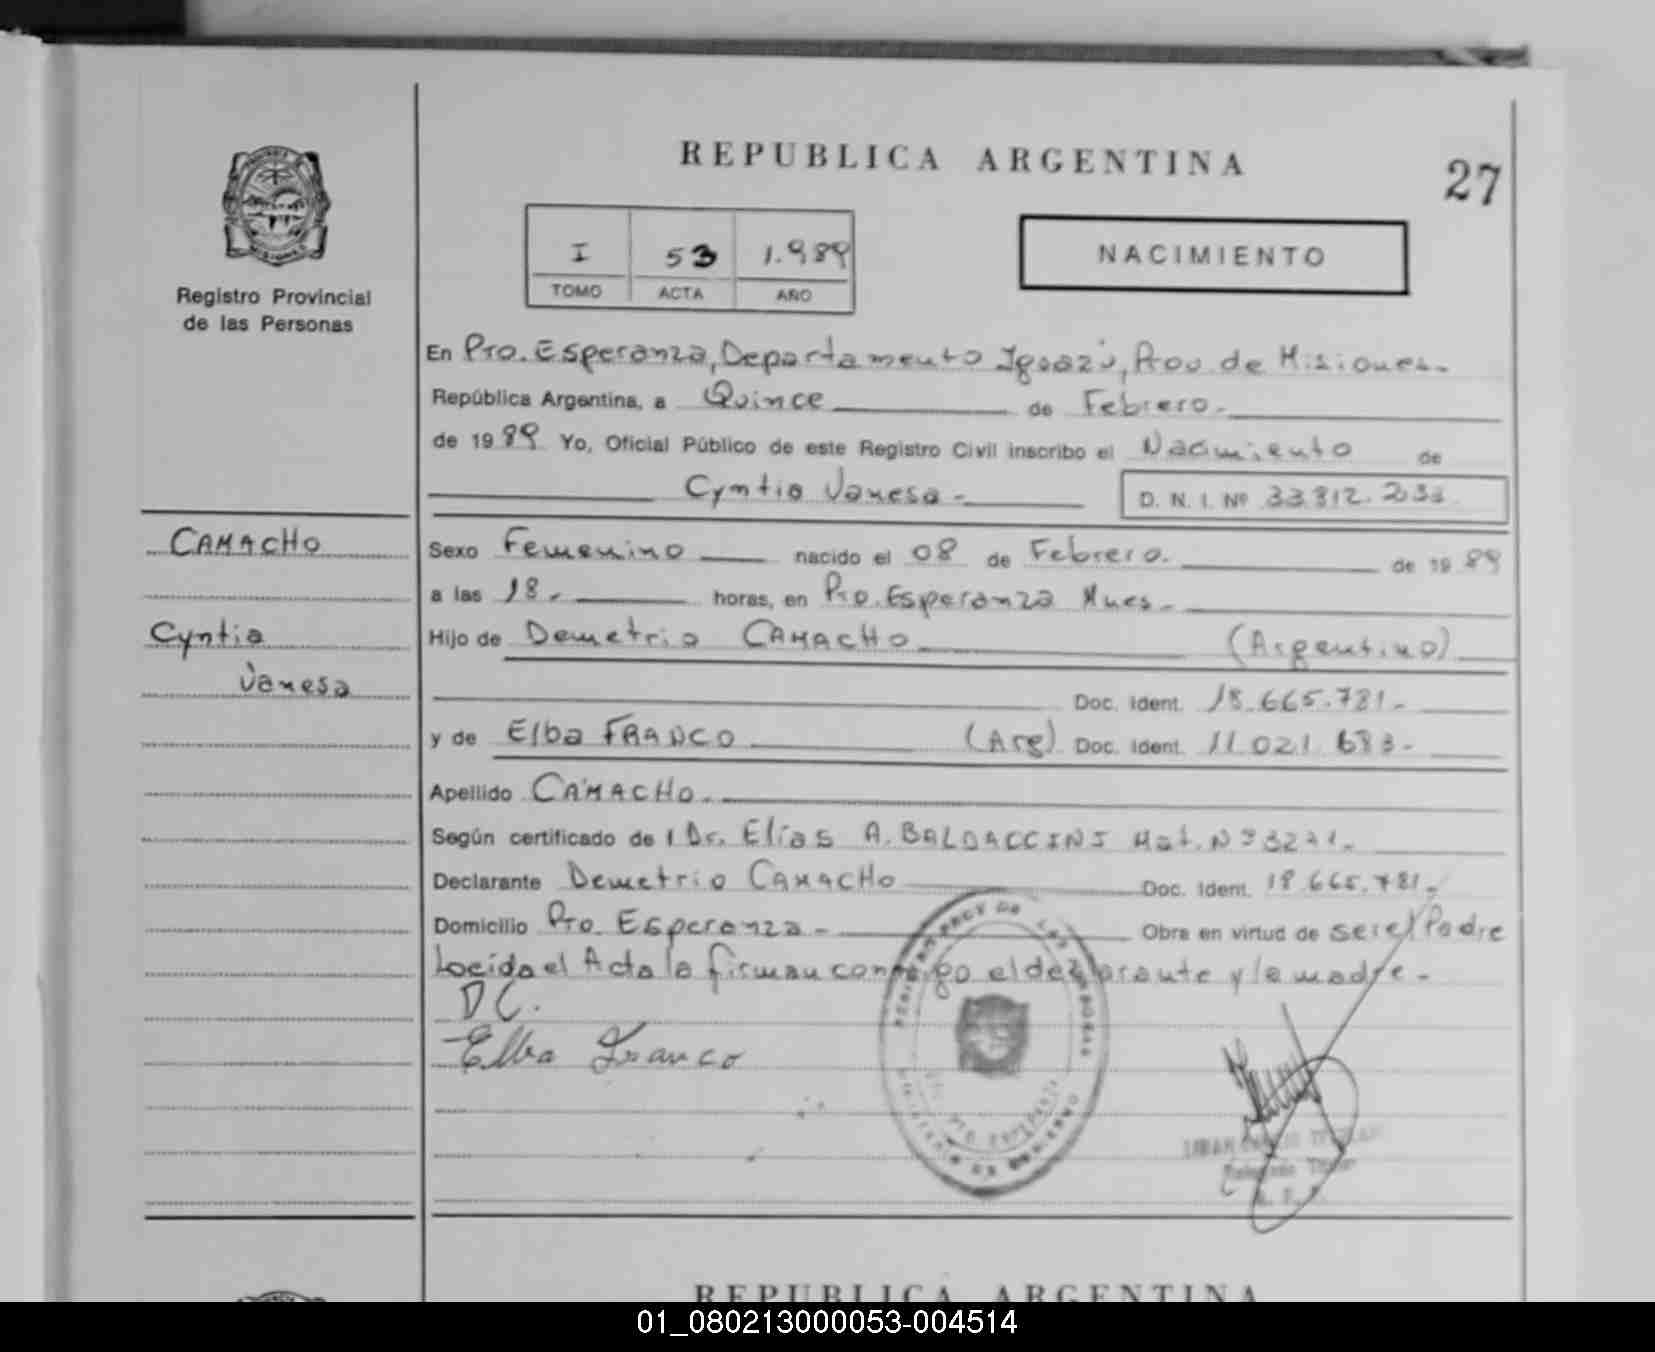 REPUBLICA ARGENTINA
27
I 53 1.989
TOMO ACTA AÑO
NACIMIENTO
Registro Provincial
de las Personas
En Pto. Esperanza, Departamento Iguazú, Prov. de Misiones.
República Argentina, a Quince de Febrero.
de 1989 Yo, Oficial Público de este Registro Civil inscribo el Nacimiento de
Cyntia Vanesa - D. N. I. Nº 33.912.
CAMACHO
Cyntia
Vanesa
Sexo Femenino nacido el 08 de Febrero. de 1989
a las 18. horas, en Pto. Esperanza Mnes.
Hijo de Demetrio CAMACHO (Argentino)
Doc. Ident. 18.665.781.-
y de Elba FRANCO (Arg) Doc. Ident. 11.021.683.-
Apellido CAMACHO.
Según certificado de l Dr. Elías A. BALDACCINI Mat. Nº
Declarante Demetrio CAMACHO Doc. Ident. 18.665.781.-
Domicilio Pto. Esperanza.- Obra en virtud de ser el Padre
Leída el Acta la firman conmigo el declarante y la madre.-
D C.
Elba Franco
PTO. ESPERANZA
MINISTERIO DE GOBIERNO
REPUBLICA ARGENTINA
01_080213000053-004514